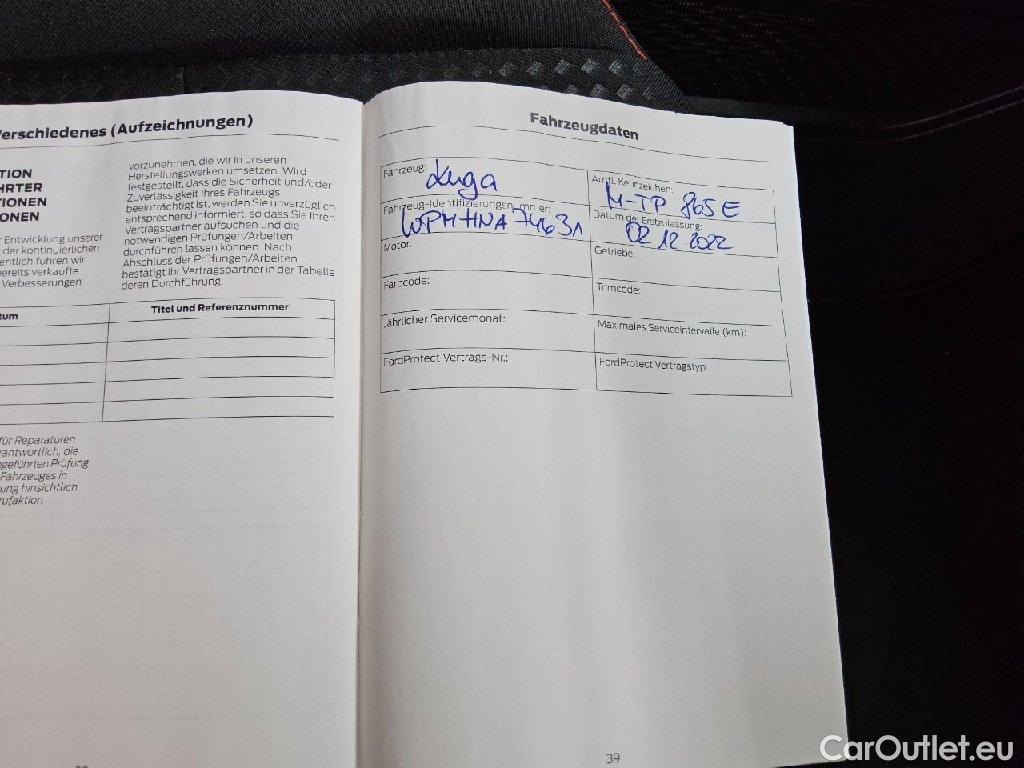 Verschiedenes (Aufzeichnungen)
TION
HRTER
TIONEN
IONEN
r Entwicklung unserer
der kontinuierlichen
entlich führen wir
bereits verkaufte
Verbesserungen
vorzunehmen, die wir in unseren
Herstellungswerken umsetzen. Wird
festgestellt, dass die Sicherheit und/oder
Zuverlässigkeit Ihres Fahrzeugs
beeinträchtigt ist, werden Sie unverzüglich
entsprechend informiert, so dass Sie Ihren
Vertragspartner aufsuchen und die
notwendigen Prüfungen/Arbeiten
durchführen lassen können. Nach
Abschluss der Prüfungen/Arbeiten
bestätigt Ihr Vertragspartner in der Tabelle
deren Durchführung.
tum
Titel und Referenznummer
für Reparaturen
rantwortlich, die
geführten Prüfung
Fahrzeuges in
ung hinsichtlich
rufaktion
Fahrzeugdaten
Fahrzeug:
Kuga
Amtl. Kennzeichen:
M-TP 865 E
Fahrzeug-Identifizierungsnummer:
WPMHNA74631
Datum der Erstzulassung:
02 12 2022
Motor:
Getriebe:
Farbcode:
Trimcode:
Jährlicher Servicemonat:
Maximales Serviceintervalle (km):
FordProtect Vertrags-Nr.:
FordProtect Vertragstyp:
39
CarOutlet.eu